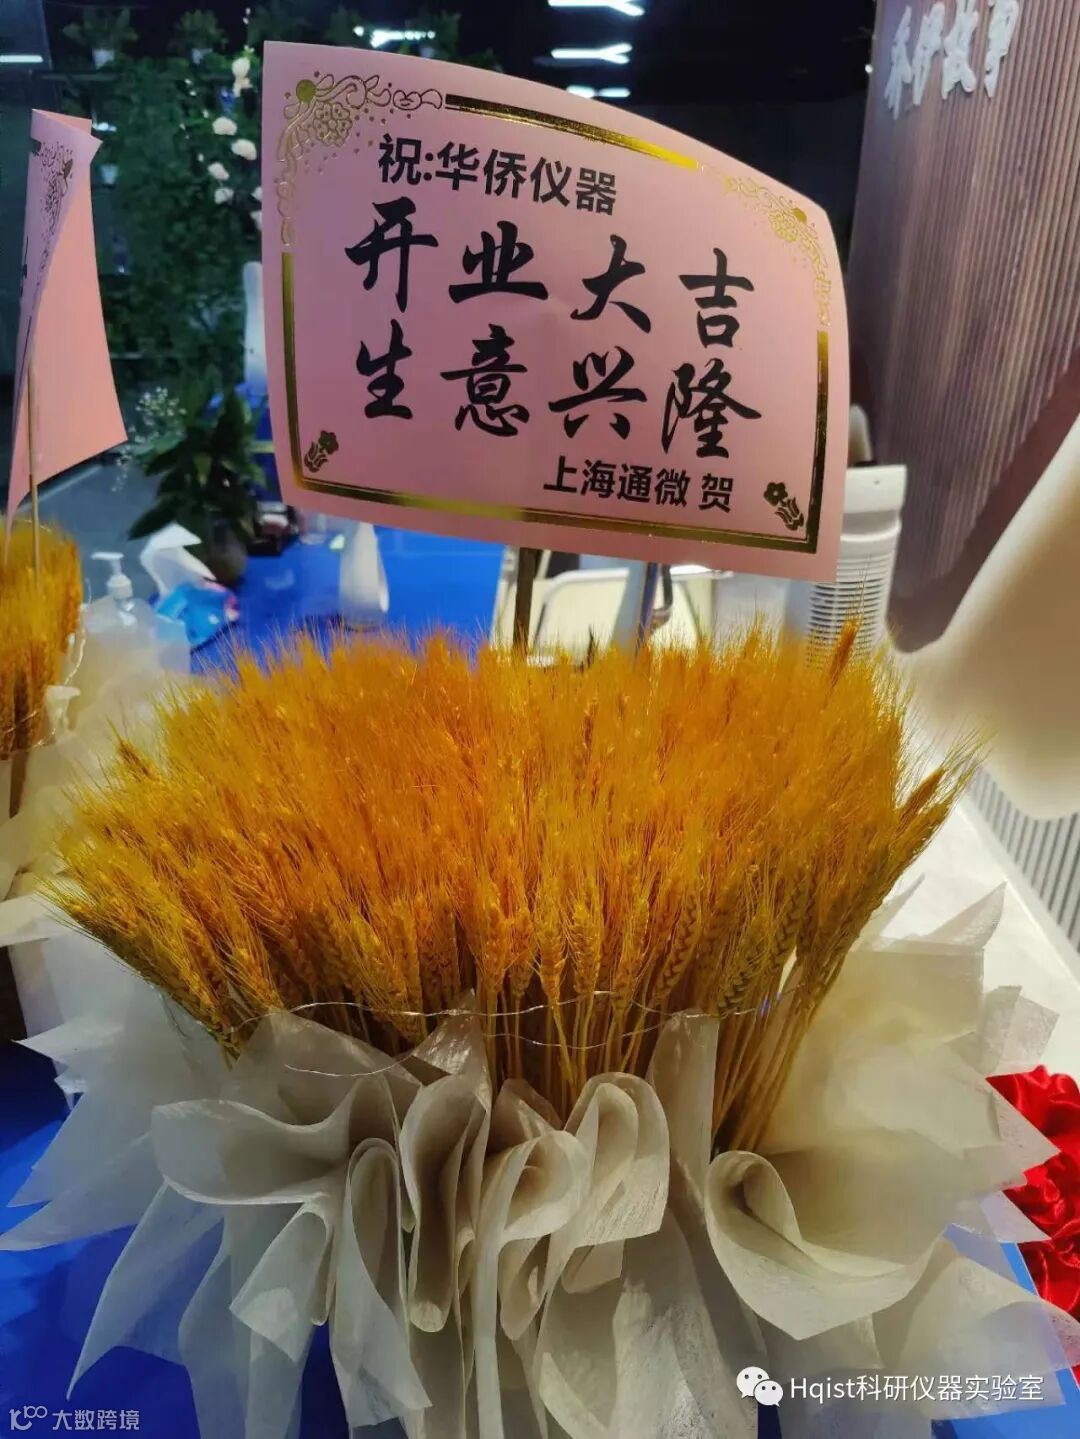 祝:华侨仪器
开业大吉
生意兴隆
上海通微 贺
Hqist科研仪器实验室
大数跨境